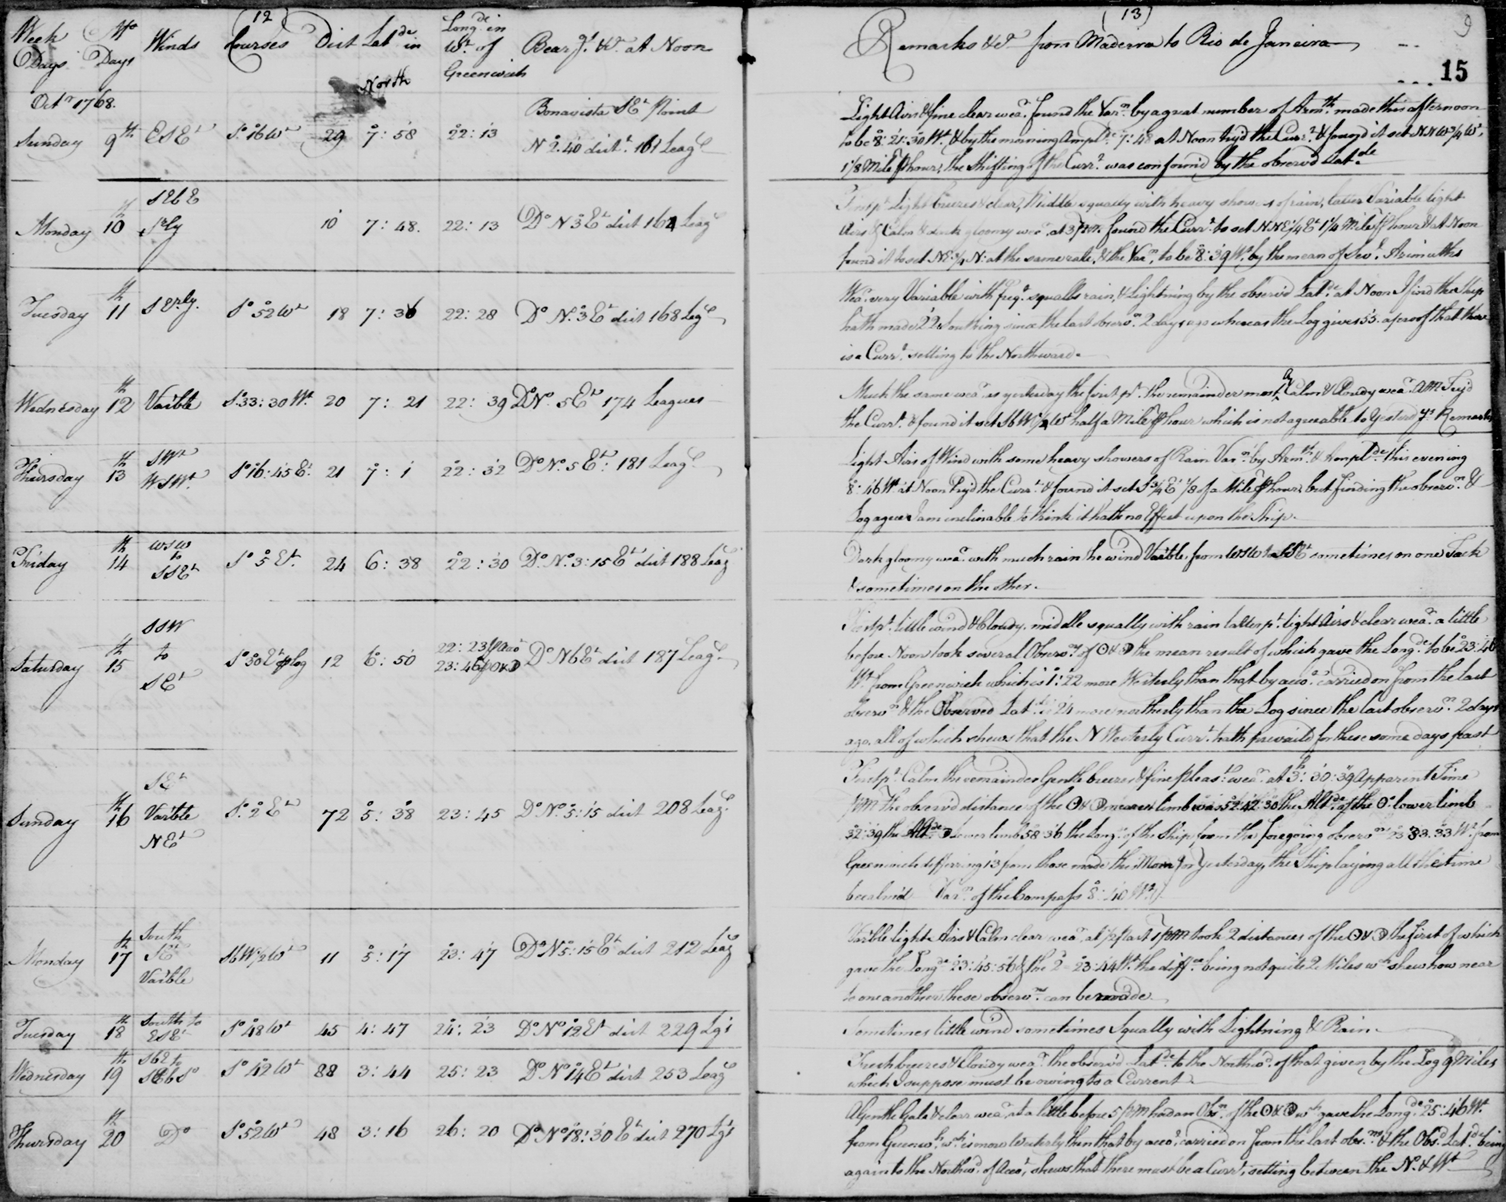 (12)
Week Days
Mo Days
Winds
Courses
Dist
Latde in North
Longde in Wt of Greenwich
Beargs &ca at Noon
Octr 1768.
Bonavista SEt Point
Sunday 9th ESEt So 16 Wt 29 7:58 22:13 N 2.40 distt 161 Leags
Monday 10th SEbE Srly 10 7:48. 22:13 Do N 3 Et dist 164 Leags
Tuesday 11th SErly. So 52 Wt 18 7:36 22:28 Do No. 3 Et dist 168 Leags
Wednesday 12th Varible So 33:30 Wt 20 7:21 22:39 Do No. 5 Et 174 Leagues
Thursday 13th SWt WSWt So 16:45 Et 21 7:1 22:32 Do No. 5 Et. 181 Leags
Friday 14th WSW to SSEt So 5 Et. 24 6:38 22:30 Do No. 3:15 Et dist 188 Leags
Saturday 15th SSW to SEt So 30 Et pr Log 12 6:50 22:23 pr Acct 23:46 pr ☉ & ☽ Do N 6 Et dist 187 Leags
Sunday 16th SEt Varible NEt So. 2 Et 72 5:38 23:45 Do No 5:15 dist 208 Leags
Monday 17th South SEt Varible SbW1/2Wt 11 5:17 23:47 Do N 5:15 Et dist 212 Leags
Tuesday 18th South to ESEt So 48 Wt 45 4:47 24:23 Do No 12 Et dist 229 Lgs
Wednesday 19th SbE to SEbSo So 42 Wt 88 3:44 25:23 Do No 14 Et dist 253 Leags
Thursday 20th Do So 52 Wt 48 3:16 26:20 Do No 18:30 Et dist 270 Lgs
(13)
9
Remarks &ca from Maderra to Rio de Janeira
15
Light Airs & fine clear wear found the Varn by a great number of Azmth made this afternoon
to be 8:21:30 Wt & by the morning Ampde 7:48 at Noon try'd the Currt & found it set NNW3/4Wt,
1/8 Mile pr hour; the shifting of the Currt was confound by the observd Latde
Firstpt light breezes & clear, Middle squally with heavy showers of rain, latter Variable light
Airs & Calm & dark gloomy wear at 3 PM found the Currt to set NNE1/4Et 1 1/4 Mile pr hour & at Noon
found it to set NE3/4N: at the same rate, & the Varn to be 8:39 Wt by the mean of Sevl Azimuths
Wear very Variable with freqt squalls rain, & Lightning by the observd Latde at Noon I find the Ship
hath made 22 Southing since the last observn 2 days ago whereas the Log gives 53. a proof that there
is a Currt setting to the Northward.
Much the same wear as yesterday the first pt the remainder mostly Calm & Cloudy wear AM Try'd
the Currt & found it set SbW1/2Wt half a Mile pr hour which is not agreable to Yesterdys Remarks
Light Airs of Wind with some heavy showers of Rain Varn by Azmth & Ampde this evening
8:46 Wt at Noon Try'd the Currt & found it set S3/4Et 1/8 of a Mile pr hour, but finding the observn &
Log agree I am inclinable to think it hath no Effect upon the Ship.
Dark gloomy wear with much rain the wind Varible from WSW to SSEt sometimes on one Tack
& sometimes on the other.
Firstpt little wind & Cloudy. middle squally with rain latter pt light Airs & clear wear a little
before Noon took several Observns of ☉ & ☽ the mean result of which gave the Longde to be 23:46
Wt from Greenwich which is 1:22 more Westerly than that by acct carried on from the last
observn & the Observed Latde is 24 more northerly than the Log since the last observn 2 days
ago, all of which shews that the NWesterly Currt hath prevaild for these some days past
Firstpt Calm the remainder Gentle breeze & fine pleast wear at 3h:30:39 Apparent Time
PM The observd distance of the ☉ & ☽ nearest limb was 52:42:30 the Altde of the ☉s lower limb
32:39 the Altde ☽ lower limb 58:36 the Longde of the Ship from the foregoing observn is 23:33:33 Wt from
Greenwich differing 13 from those made the Morng Yesterday, the Ship laying all the time
becalmd Varn of the Compass 8:40 Wt
Varible light Airs & Calm clear wear at 1/2 past 1 PM took 2 distances of the ☉ & ☽ the first of which
gave the Longde 23:45:56 & the 2d 23:44 Wt the diffce being not quite 2 Miles wch shew how near
to one another these observns can be made
Sometimes little wind sometimes Squally with Lightning & Rain.
Fresh breeze & Cloudy wear the observd Latde to the Northwd of that given by the Log 9 Miles
which I suppose must be owing to a Current
A Gentle Gale & clear wear at a little before 5 PM had an Obsn of the ☉ & ☽ wch gave the Longde 25:46 Wt
from Greenwh wch is more Westerly then that by acct carried on from the last obsn & the Obsd Latde being
again to the Northwd of Acct, shews that there must be a Currt setting between the No. & Wt